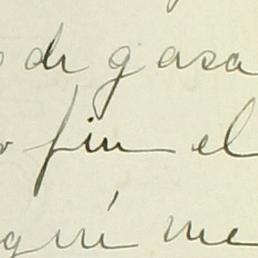 de gasa
fin el
quí me